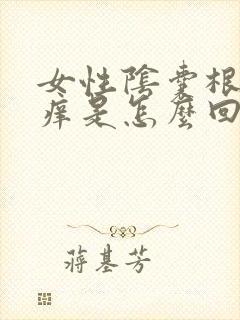 女性陰囊根
痒是怎麼回
蔣基芳